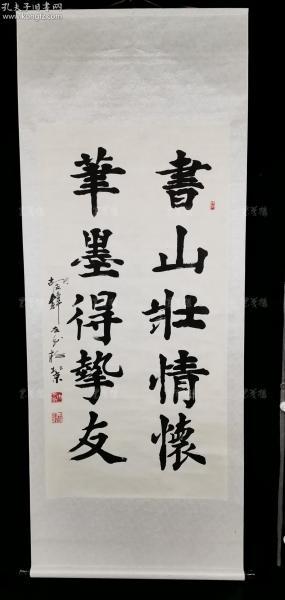 孔夫子旧书网
www.kongfz.com
書山壯情懷
筆墨得摯友